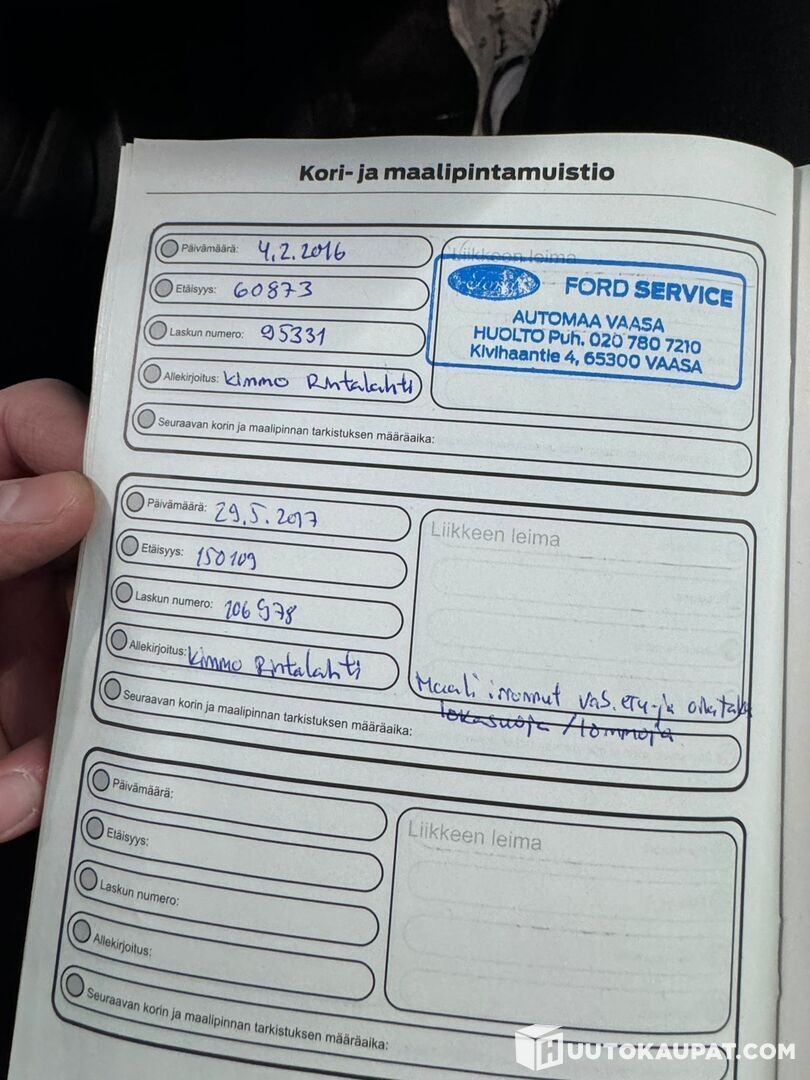 Kori- ja maalipintamuistio
Päivämäärä: 4.2.2016
Liikkeen leima
Etäisyys: 60873
Ford FORD SERVICE
AUTOMAA VAASA
HUOLTO Puh. 020 780 7210
Kivihaantie 4, 65300 VAASA
Laskun numero: 95331
Allekirjoitus: Kimmo Rintalahti
Seuraavan korin ja maalipinnan tarkistuksen määräaika:
Päivämäärä: 29.5.2017
Liikkeen leima
Etäisyys: 150109
Laskun numero: 106978
Allekirjoitus: Kimmo Rintalahti
Maali irronnut vas. etu- ja oikea taka
lokasuoja / lommoja
Seuraavan korin ja maalipinnan tarkistuksen määräaika:
Päivämäärä:
Liikkeen leima
Etäisyys:
Laskun numero:
Allekirjoitus:
Seuraavan korin ja maalipinnan tarkistuksen määräaika:
HUUTOKAUPAT.COM